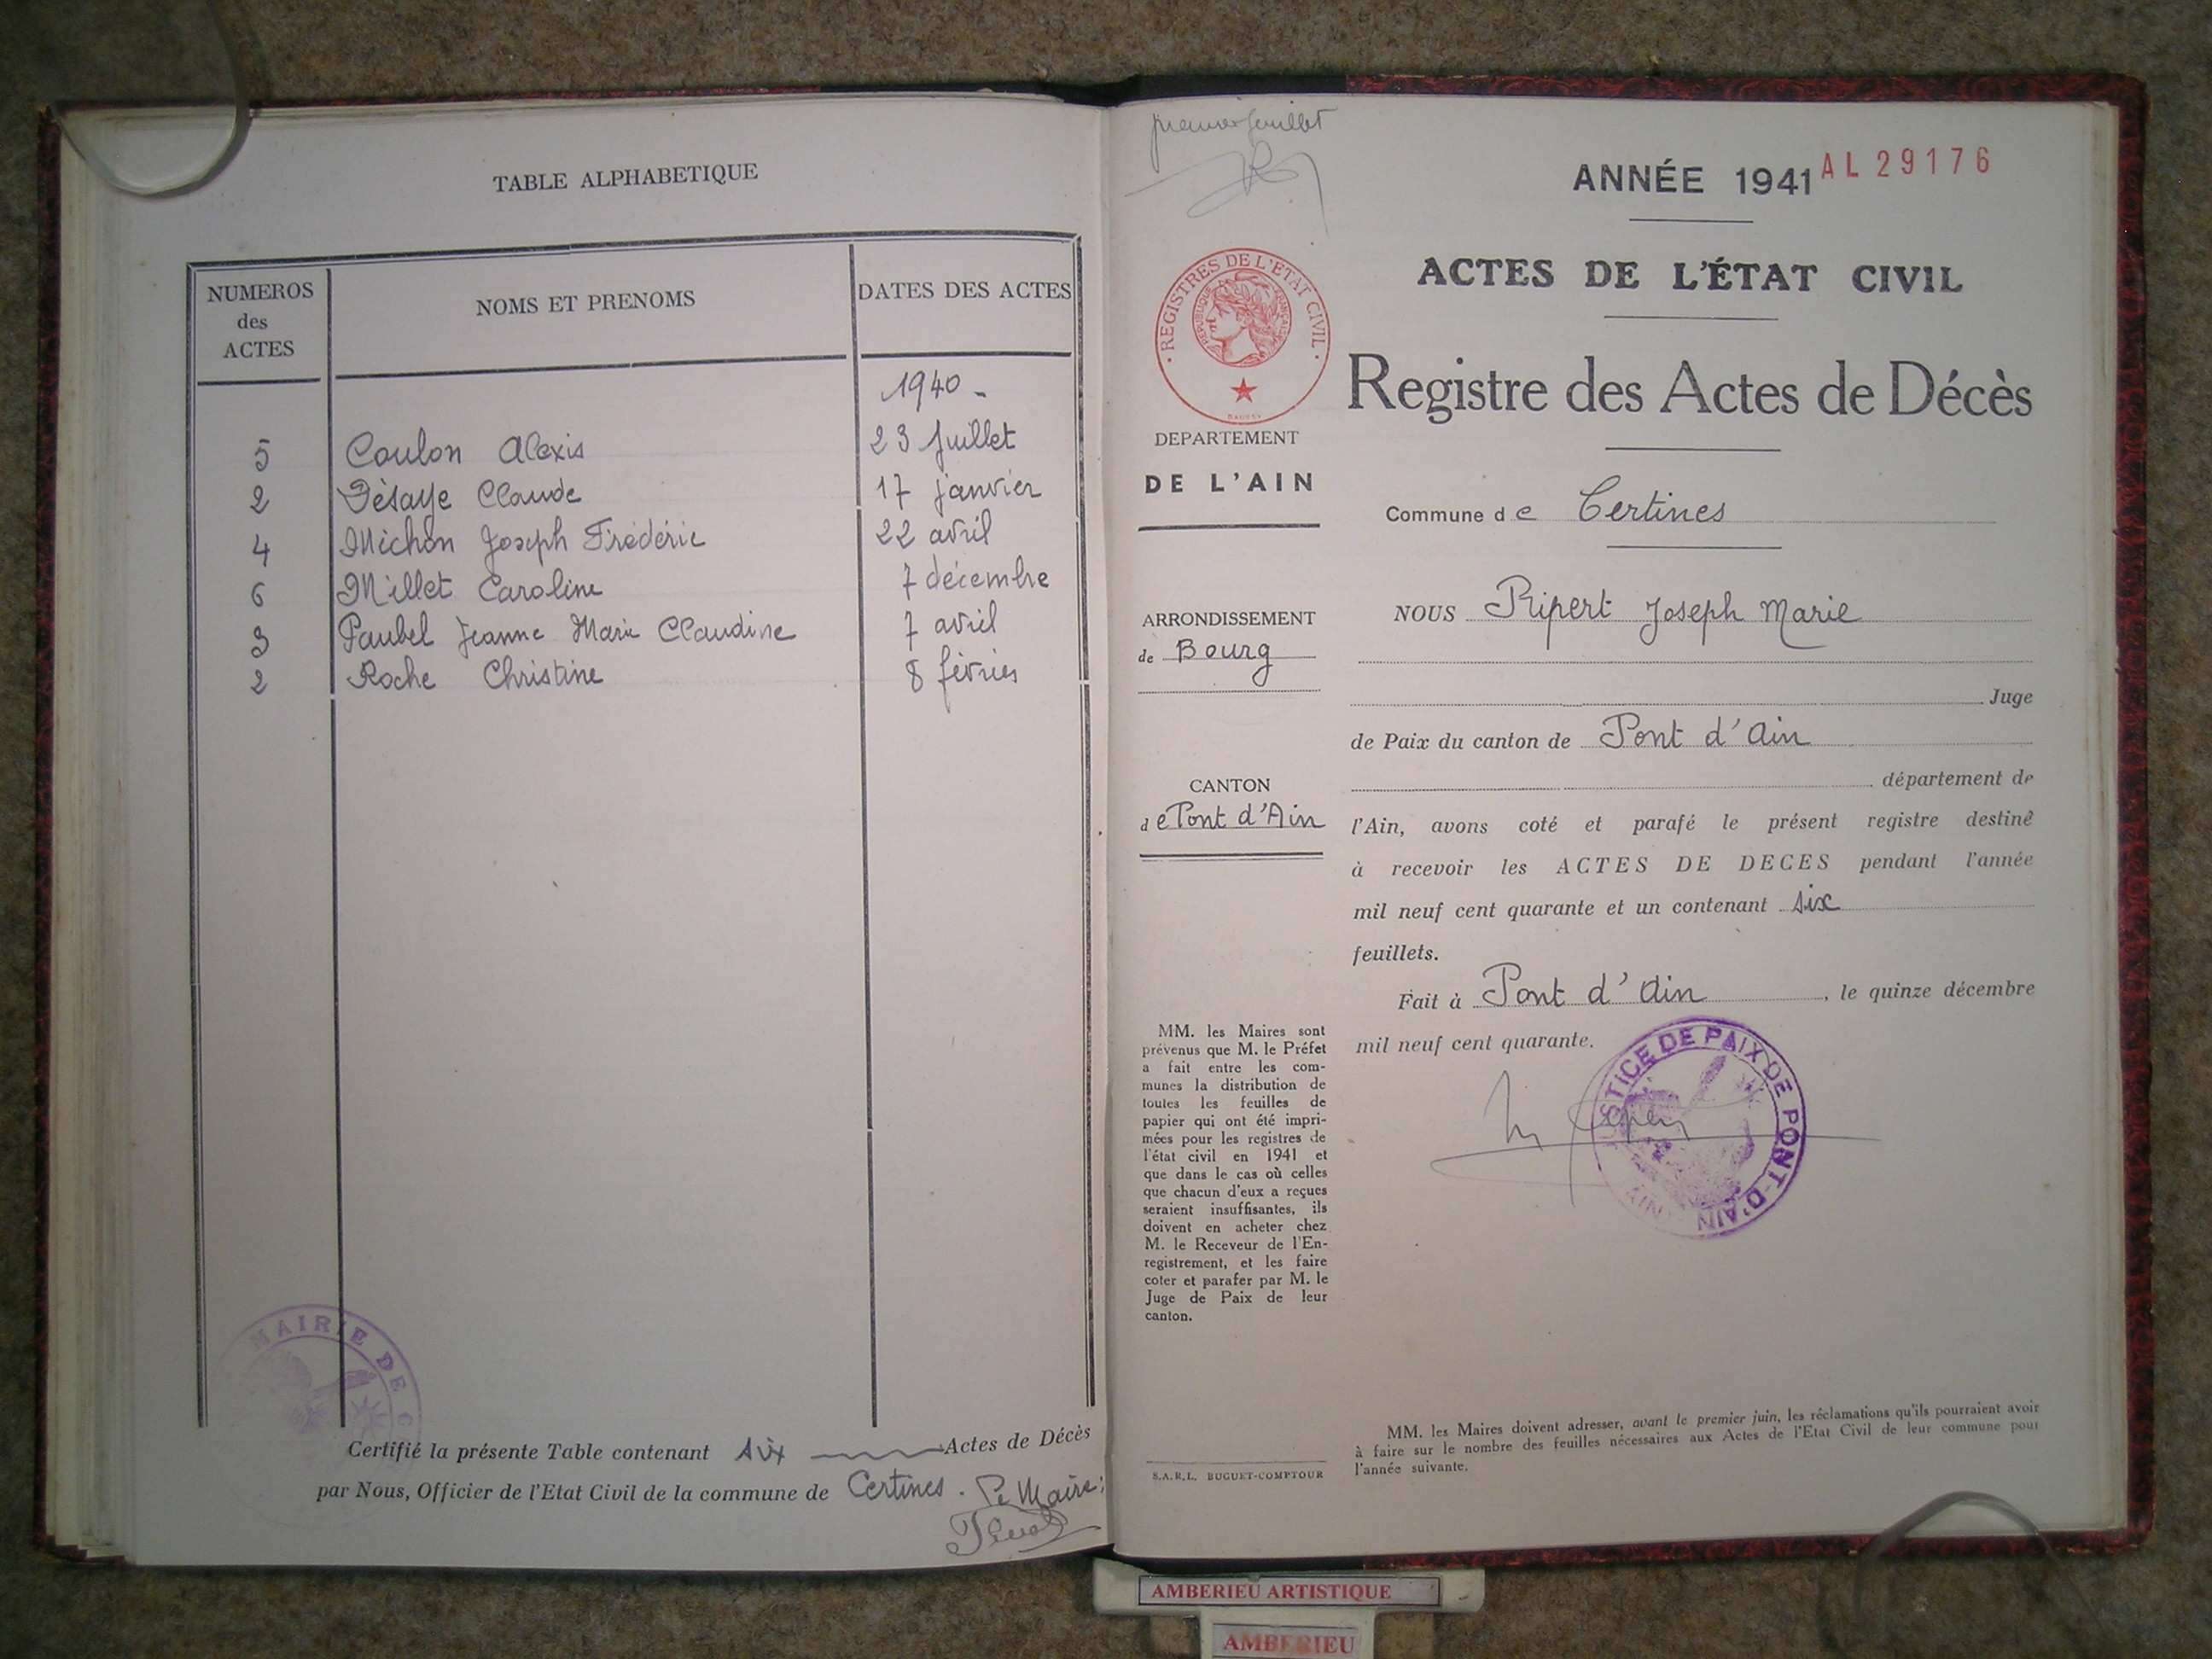 TABLE ALPHABETIQUE
NUMEROS des ACTES
NOMS ET PRENOMS
DATES DES ACTES
1940 -
5 Coulon Alexis 23 Juillet
2 Désaye Claude 17 janvier
4 Michon Joseph Frédéric 22 avril
6 Millet Caroline 7 décembre
3 Paubel Jeanne Marie Claudine 7 avril
2 Roche Christine 8 février
MAIRIE DE C
Certifié la présente Table contenant six Actes de Décès
par Nous, Officier de l'Etat Civil de la commune de Certines. Le Maire:
premier feuillet
ANNÉE 1941 AL 29176
ACTES DE L'ÉTAT CIVIL
Registre des Actes de Décès
· REGISTRES DE L'ETAT CIVIL ·
REPUBLIQUE FRANÇAISE
DEPARTEMENT
DE L'AIN
Commune de Certines
ARRONDISSEMENT
de Bourg
CANTON
de Pont d'Ain
NOUS Ripert Joseph Marie
Juge
de Paix du canton de Pont d'Ain
département de
l'Ain, avons coté et parafé le présent registre destiné
à recevoir les ACTES DE DECES pendant l'année
mil neuf cent quarante et un contenant six
feuillets.
Fait à Pont d'Ain, le quinze décembre
mil neuf cent quarante.
JUSTICE DE PAIX DE PONT-D'AIN
(AIN)
MM. les Maires sont
prévenus que M. le Préfet
a fait entre les com-
munes la distribution de
toutes les feuilles de
papier qui ont été impri-
mées pour les registres de
l'état civil en 1941 et
que dans le cas où celles
que chacun d'eux a reçues
seraient insuffisantes, ils
doivent en acheter chez
M. le Receveur de l'En-
registrement, et les faire
coter et parafer par M. le
Juge de Paix de leur
canton.
S.A.R.L. BUGUET-COMPTOUR
MM. les Maires doivent adresser, avant le premier juin, les réclamations qu'ils pourraient avoir
à faire sur le nombre des feuilles nécessaires aux Actes de l'Etat Civil de leur commune pour
l'année suivante.
AMBERIEU ARTISTIQUE
AMBERIEU